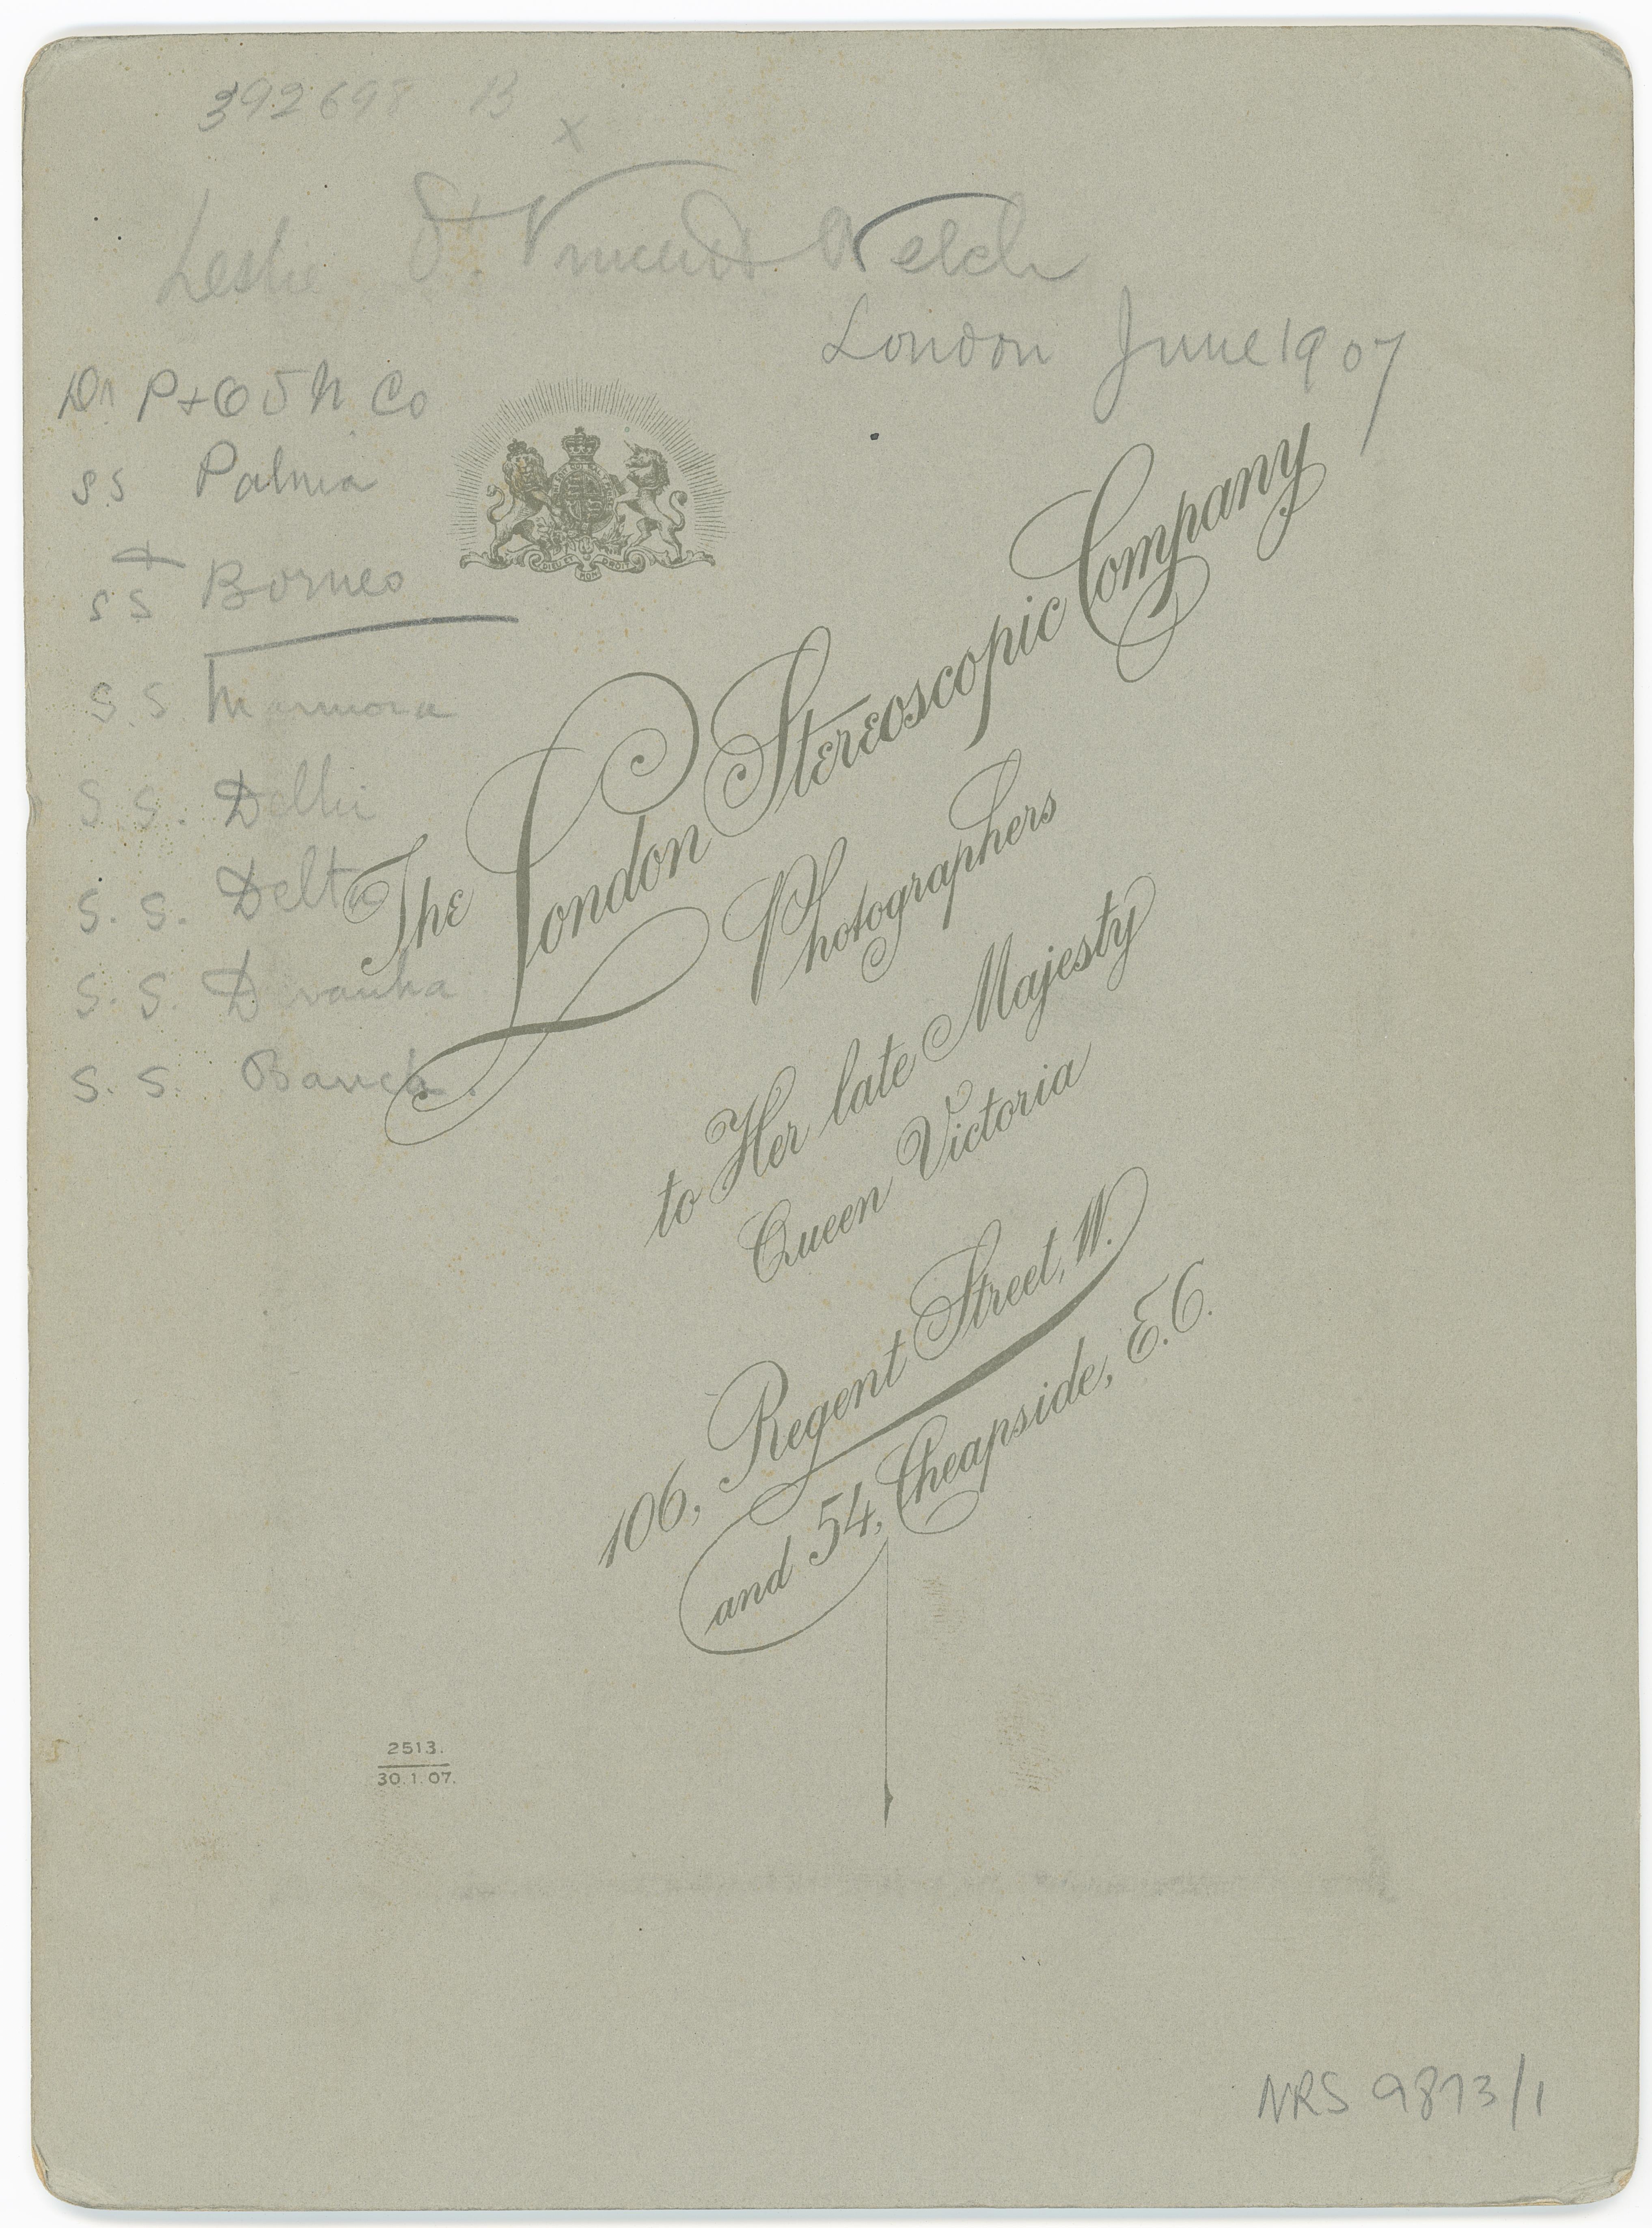 392698 B
x
Leslie St. Vincent Welch
London June 1907
Dr P+O S N Co
SS Palma
SS Borneo
S.S Marmora
S.S. Delhi
S.S. Delta
S.S. Devanha
S.S.
DIEU ET MON DROIT
The London Stereoscopic Company
Photographers
to Her late Majesty
Queen Victoria
106, Regent Street, W.
and 54, Cheapside, E.C.
2513.
30.1.07.
NRS 9873/1